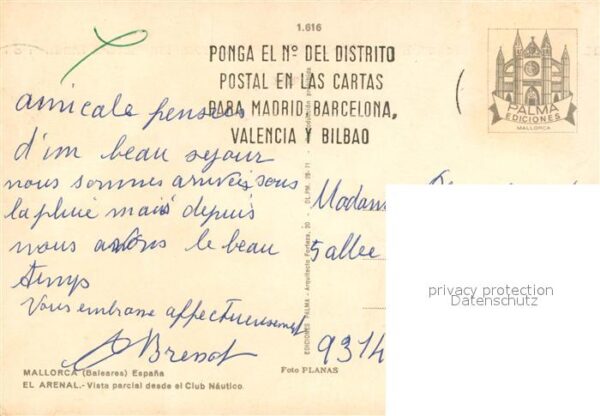 1.616
PONGA EL Nº DEL DISTRITO
POSTAL EN LAS CARTAS
PARA MADRID, BARCELONA,
VALENCIA Y BILBAO
PALMA
EDICIONES
MALLORCA
amicale pensées
d'un beau sejour
nous sommes arrivées sous
la pluie mais depuis
nous avons le beau
temps
Vous embrasse affectueusement
Bressot
Madame
5 allée
9314
privacy protection
Datenschutz
EDICIONES PALMA - Arquitecto Forteza, 30 - DL.PM.
MALLORCA (Baleares) España
EL ARENAL.- Vista parcial desde el Club Náutico.
Foto PLANAS